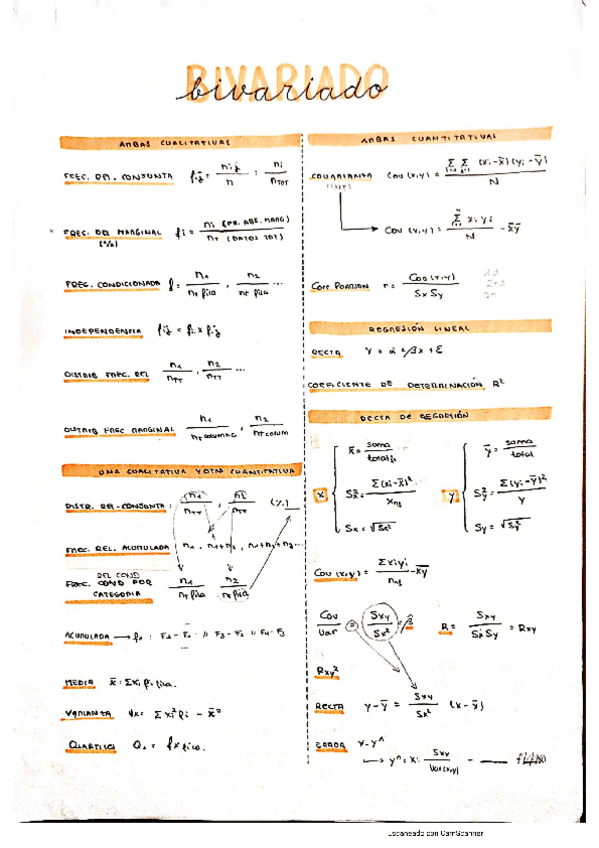 BIVARIADO
bivariado
AMBAS CUALITATIVAS
FREC. REL. CONJUNTA fij = nij / n = ni / nTOT
FREC. REL MARGINAL fi = ni (FR. ABS. MARG) / nT (DATOS TOT)
(%)
FREC. CONDICIONADA f = n1 / nT fila , n2 / nT fila ...
INDEPENDENCIA fij = fi x fj
DISTRIB FREC. REL n1 / nTT , n2 / nTT ...
DISTRIB FREC MARGINAL n1 / nT columna , n2 / nT colum
UNA CUALITATIVA Y OTRA CUANTITATIVA
DISTR. REL. CONJUNTA: n1 / nTT , n2 / nTT (%)
FREC. REL. ACUMULADA n1 , n1+n2 , n1+n2+n3...
REL COND
FREC. COND POR CATEGORIA n1 / nT fila n2 / nT fila
ACUMULADA → fx : F2 - F1 // F3 - F2 // F4 - F3
MEDIA x̄ = Σxi fi fila.
VARIANZA Vx = Σ xi² fi - x̄²
QUARTILES
AMBAS CUANTITATIVAS
COVARIANZA Cov (x,y) = Σ Σ (xi - x̄)(yi - ȳ) / N
Cov (x,y) = Σ xi yi / N - x̄ȳ
r = Cov (x,y) / Sx Sy
REGRESIÓN LINEAL
RECTA
COEFICIENTE DE DETERMINACIÓN R²
RECTA DE REGRESIÓN
x
x̄ = suma / total
Sx² = Σ(xi - x̄)²
Sx = √Sx²
y
ȳ = suma / total
Sy² = Σ(yi - ȳ)² / y
Sy = √Sy²
Cov (x,y) = Σxiyi - x̄ȳ
Cov / Var = Sxy / Sx² = β
R = Sxy / Sx Sy = Rxy
Rxy²
RECTA y - ȳ = Sxy / Sx² (x - x̄)
ERROR
Escaneado con CamScanner